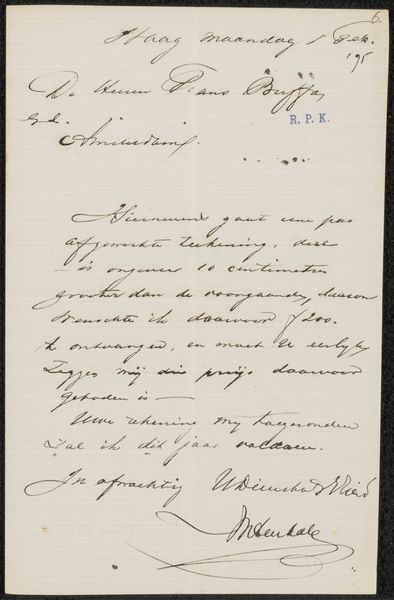 6.
Haag maandag Feb.
'95
De Heeren Frans Buffa
R. P. K.
Amsterdam.
Hiernevens gaat eene pas
afgewerkte teekening, deze
is ongeveer 10 centimeter
grooter dan de voorgaande, daarom
wenschte ik daarvoor ƒ200.
te ontvangen, en moet U eerlijk
zeggen mij die prijs daarvoor
geboden is —
Uwe rekening mij toegezonden
zal ik dit jaar voldoen.
In afwachting